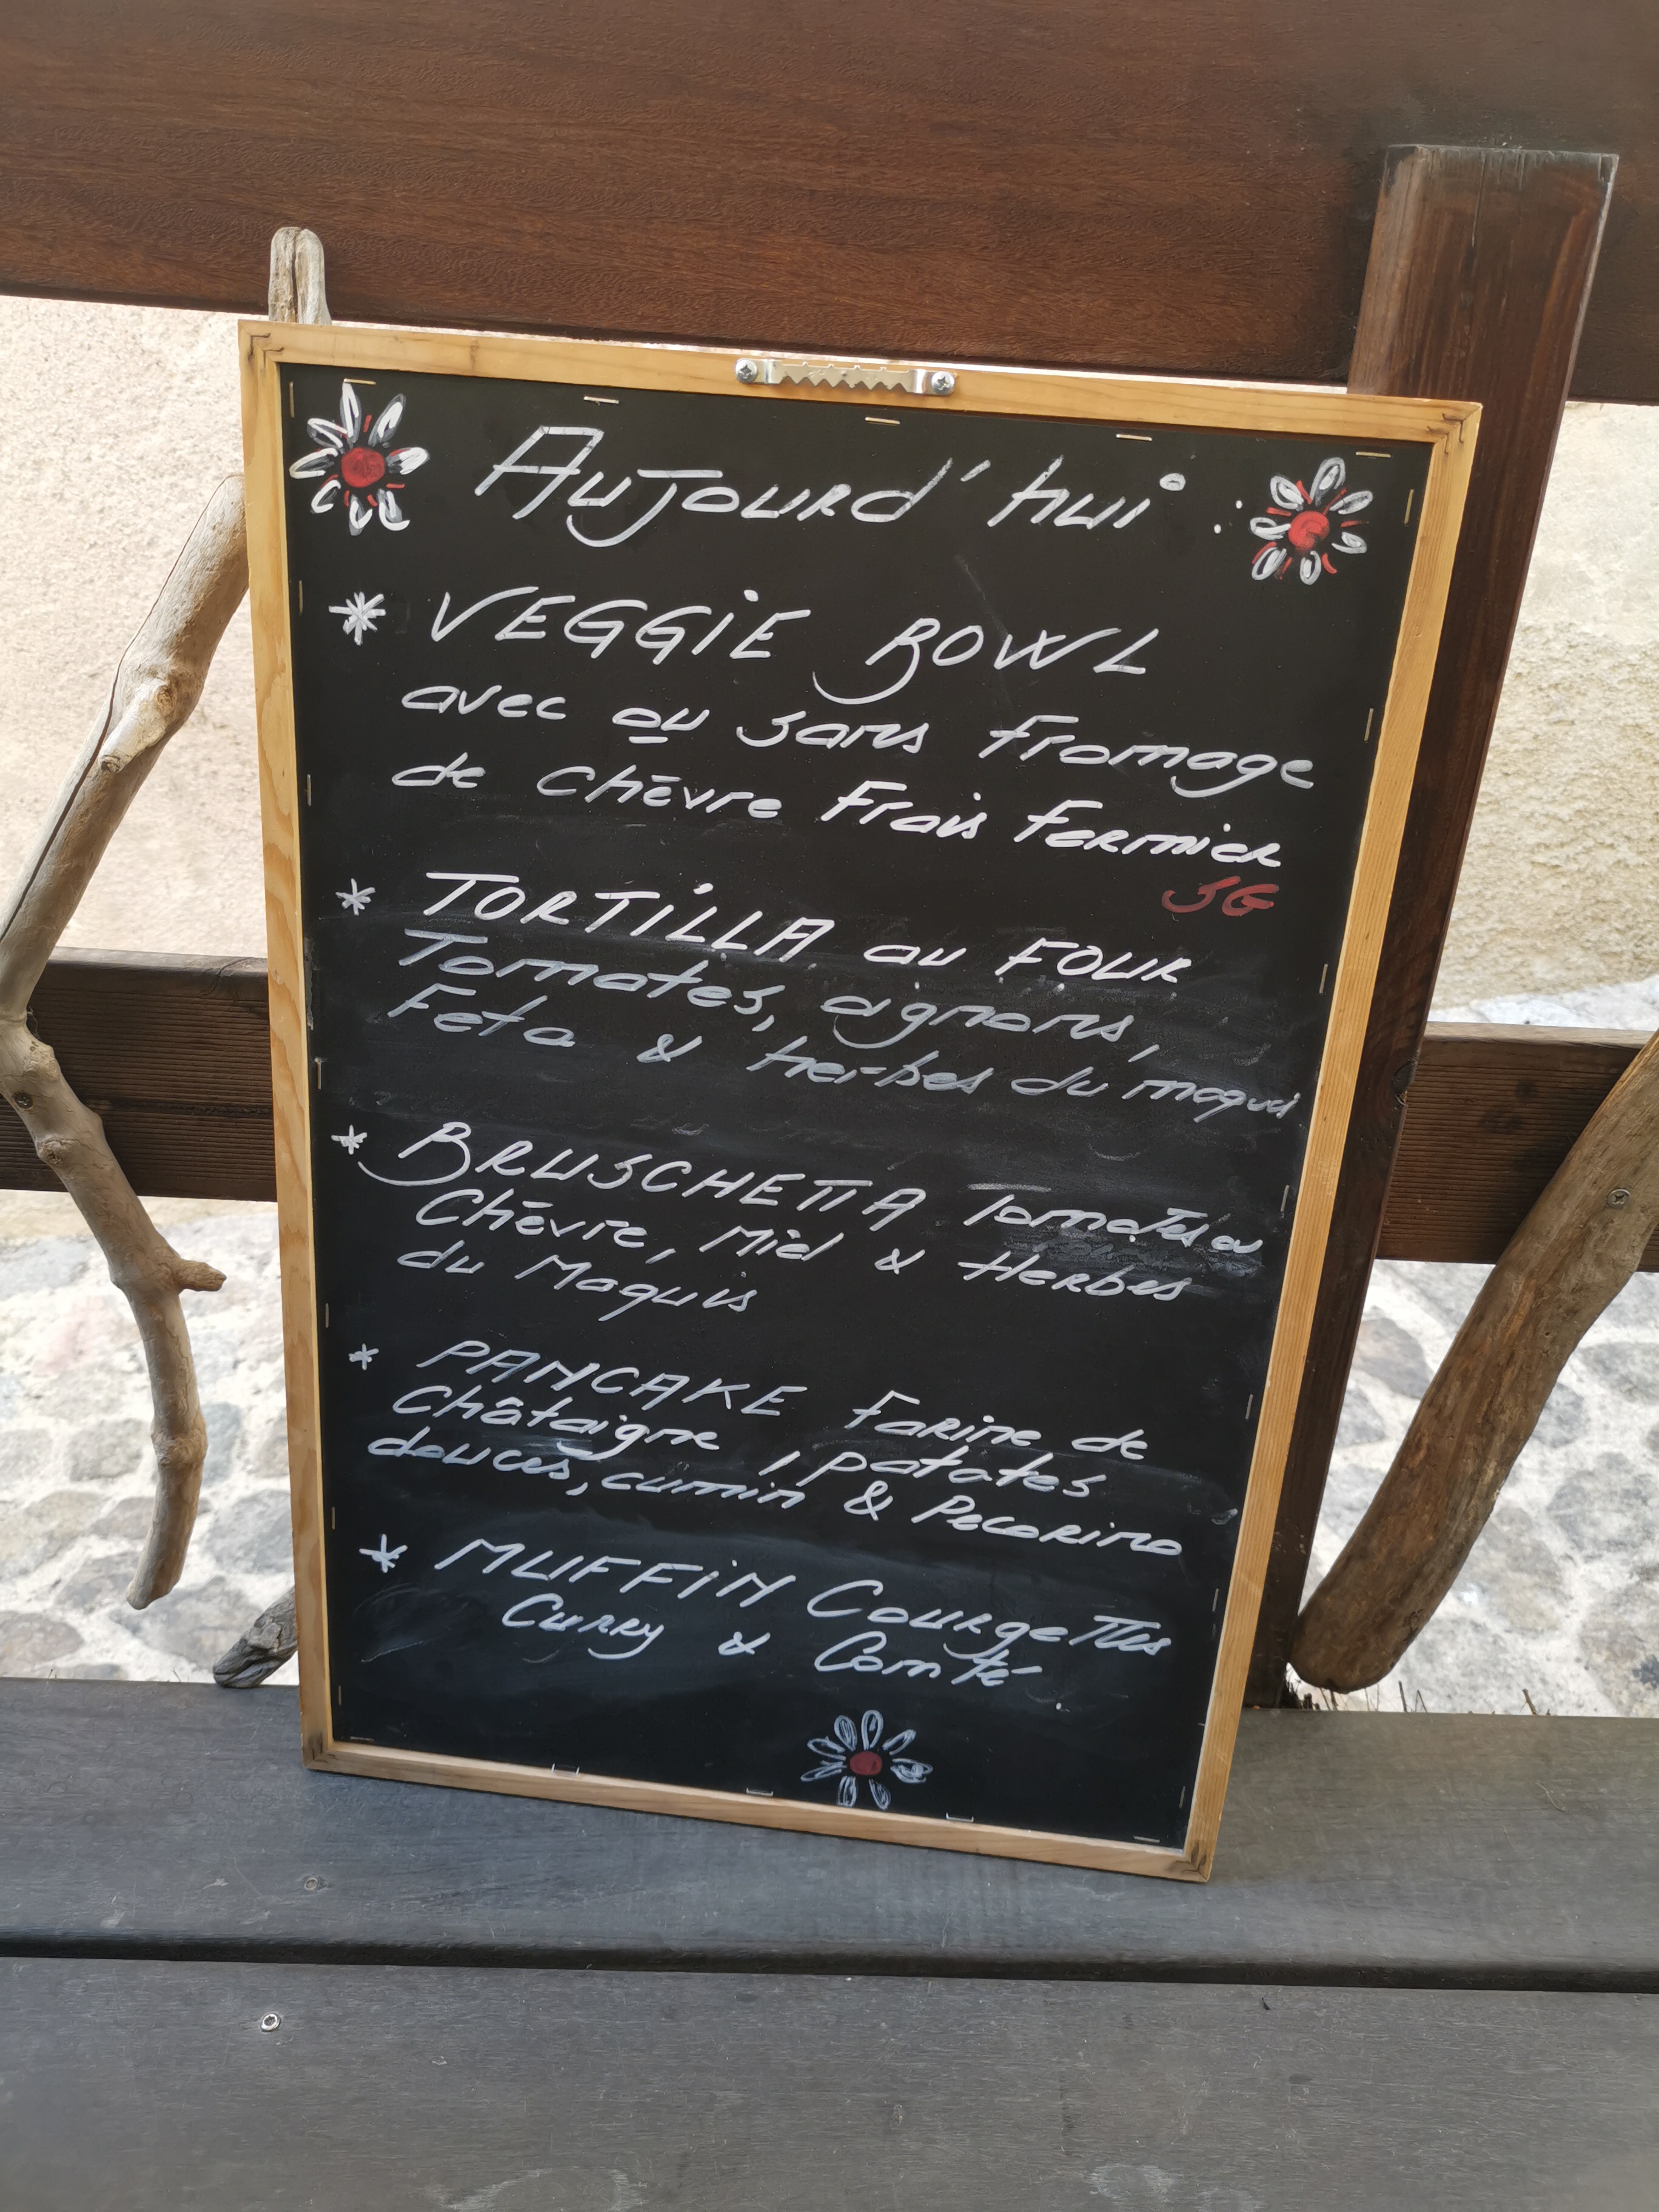 Aujourd'hui :
* VEGGiE BOWL
avec ou sans fromage
de Chèvre Frais Fermier
SG
* TORTiLLA au FOUR
Tomates, oignons,
Feta & herbes du maqui
* BRUSCHETTA Tomates ou
Chèvre, Miel & Herbes
du Maquis
* PANCAKE Farine de
Châtaigne, patates
douces, cumin & Pecorino
* MUFFiN Courgettes
Curry & Comté.